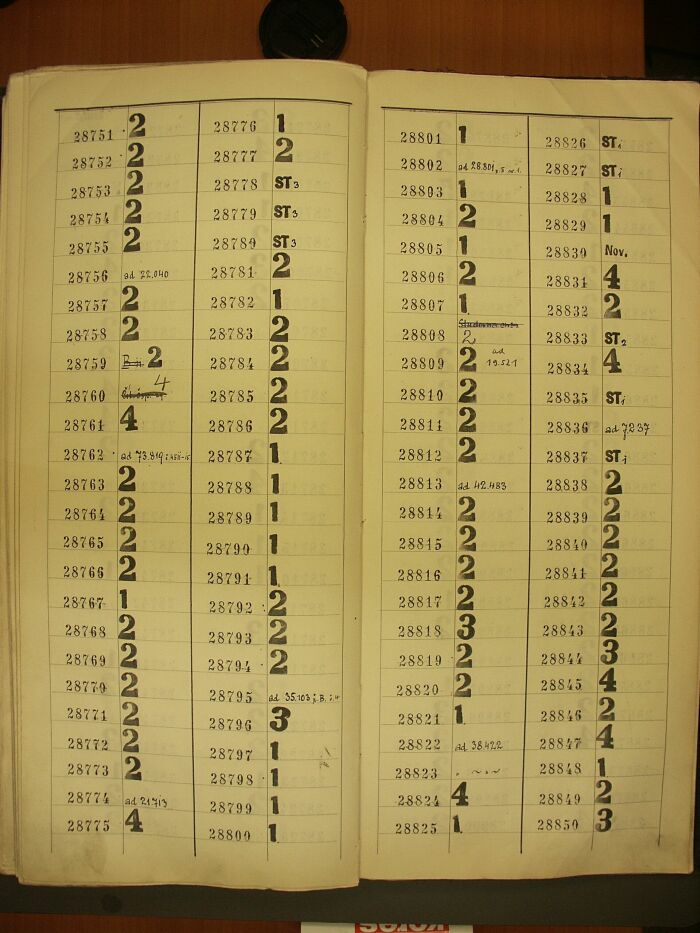 28751 2
28752 2
28753 2
28754 2
28755 2
28756 ad 22.040
28757 2
28758 2
28759 2
28760 4
28761 4
28762 ad 73.819
28763 2
28764 2
28765 2
28766 2
28767 1
28768 2
28769 2
28770 2
28771 2
28772 2
28773 2
28774 ad 21713
28775 4
28776 1
28777 2
28778 ST3
28779 ST3
28780 ST3
28781 2
28782 1
28783 2
28784 2
28785 2
28786 2
28787 1
28788 1
28789 1
28790 1
28791 1
28792 2
28793 2
28794 2
28795 ad 35.103
28796 3
28797 1
28798 1
28799 1
28800 1
28801 1
28802 ad 28.801
28803 1
28804 2
28805 1
28806 2
28807 1
28808 2
28809 2 ad 19.521
28810 2
28811 2
28812 2
28813 ad 42.483
28814 2
28815 2
28816 2
28817 2
28818 3
28819 2
28820 2
28821 1
28822 ad 38.422
28823 . ~ . ~
28824 4
28825 1
28826 ST1
28827 ST1
28828 1
28829 1
28830 Nov.
28831 4
28832 2
28833 ST2
28834 4
28835 ST1
28836 ad 7237
28837 ST1
28838 2
28839 2
28840 2
28841 2
28842 2
28843 2
28844 3
28845 4
28846 2
28847 4
28848 1
28849 2
28850 3